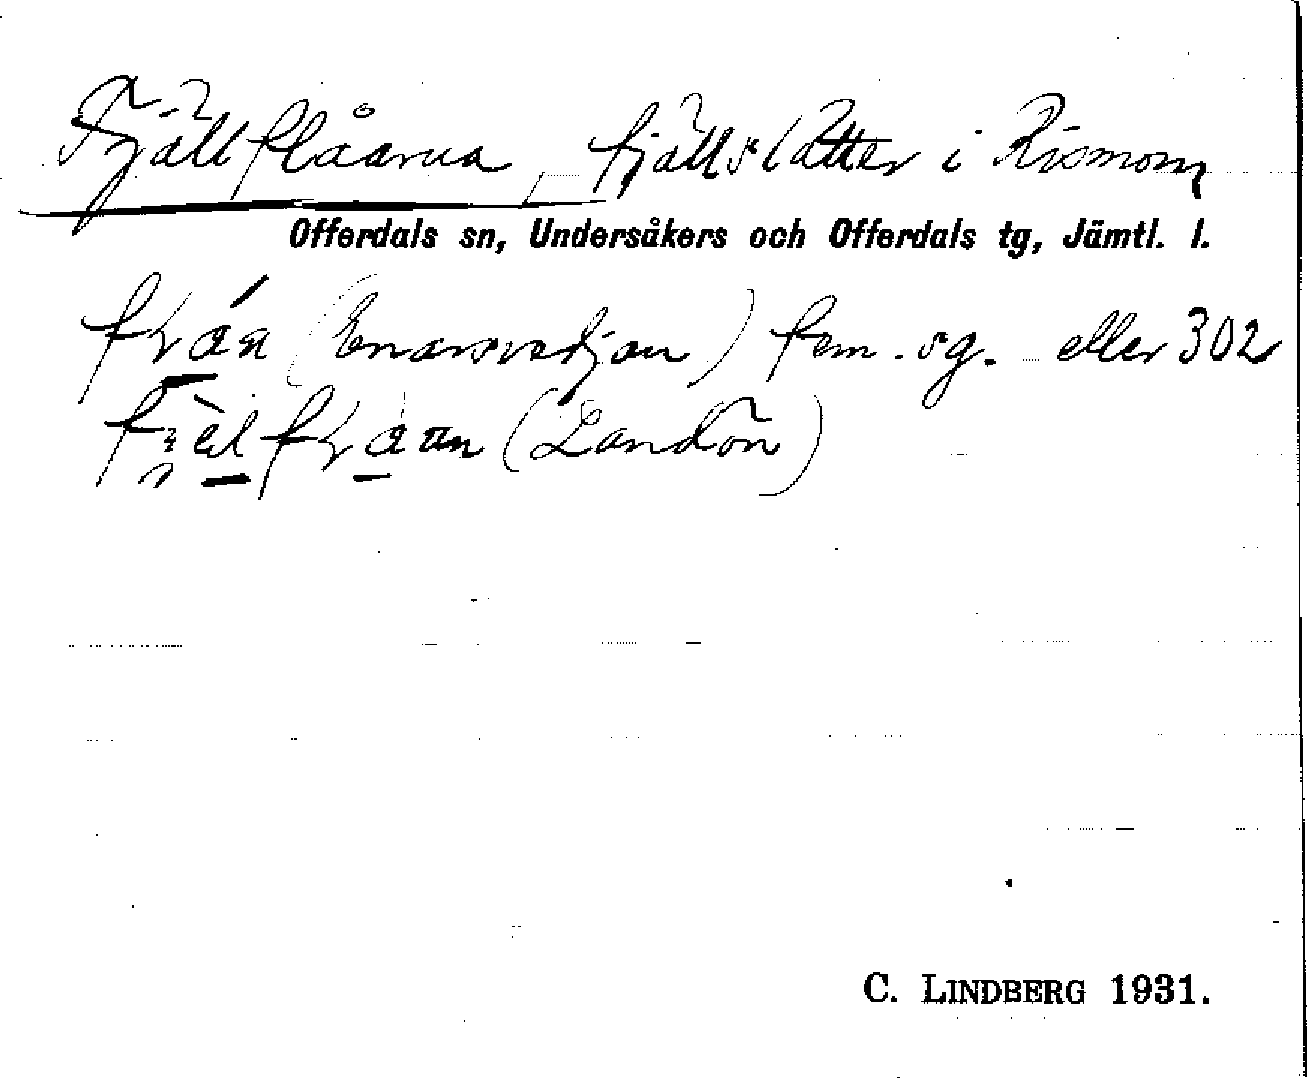 Fjällflåarna, fjällslåtter i Rismon
Offerdals sn, Undersåkers och Offerdals tg, Jämtl. l.
(Enarsvedjan) fem. sg. eller 302
(Landön)
C. LINDBERG 1931.